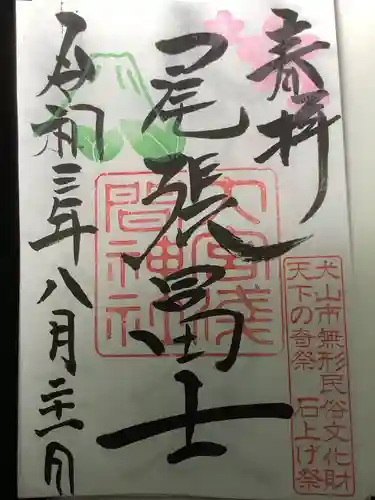 奉拝
犬山市無形民俗文化財
天下の奇祭 石上げ祭
尾張冨士
大宮浅
間神社
令和三年八月二十一日